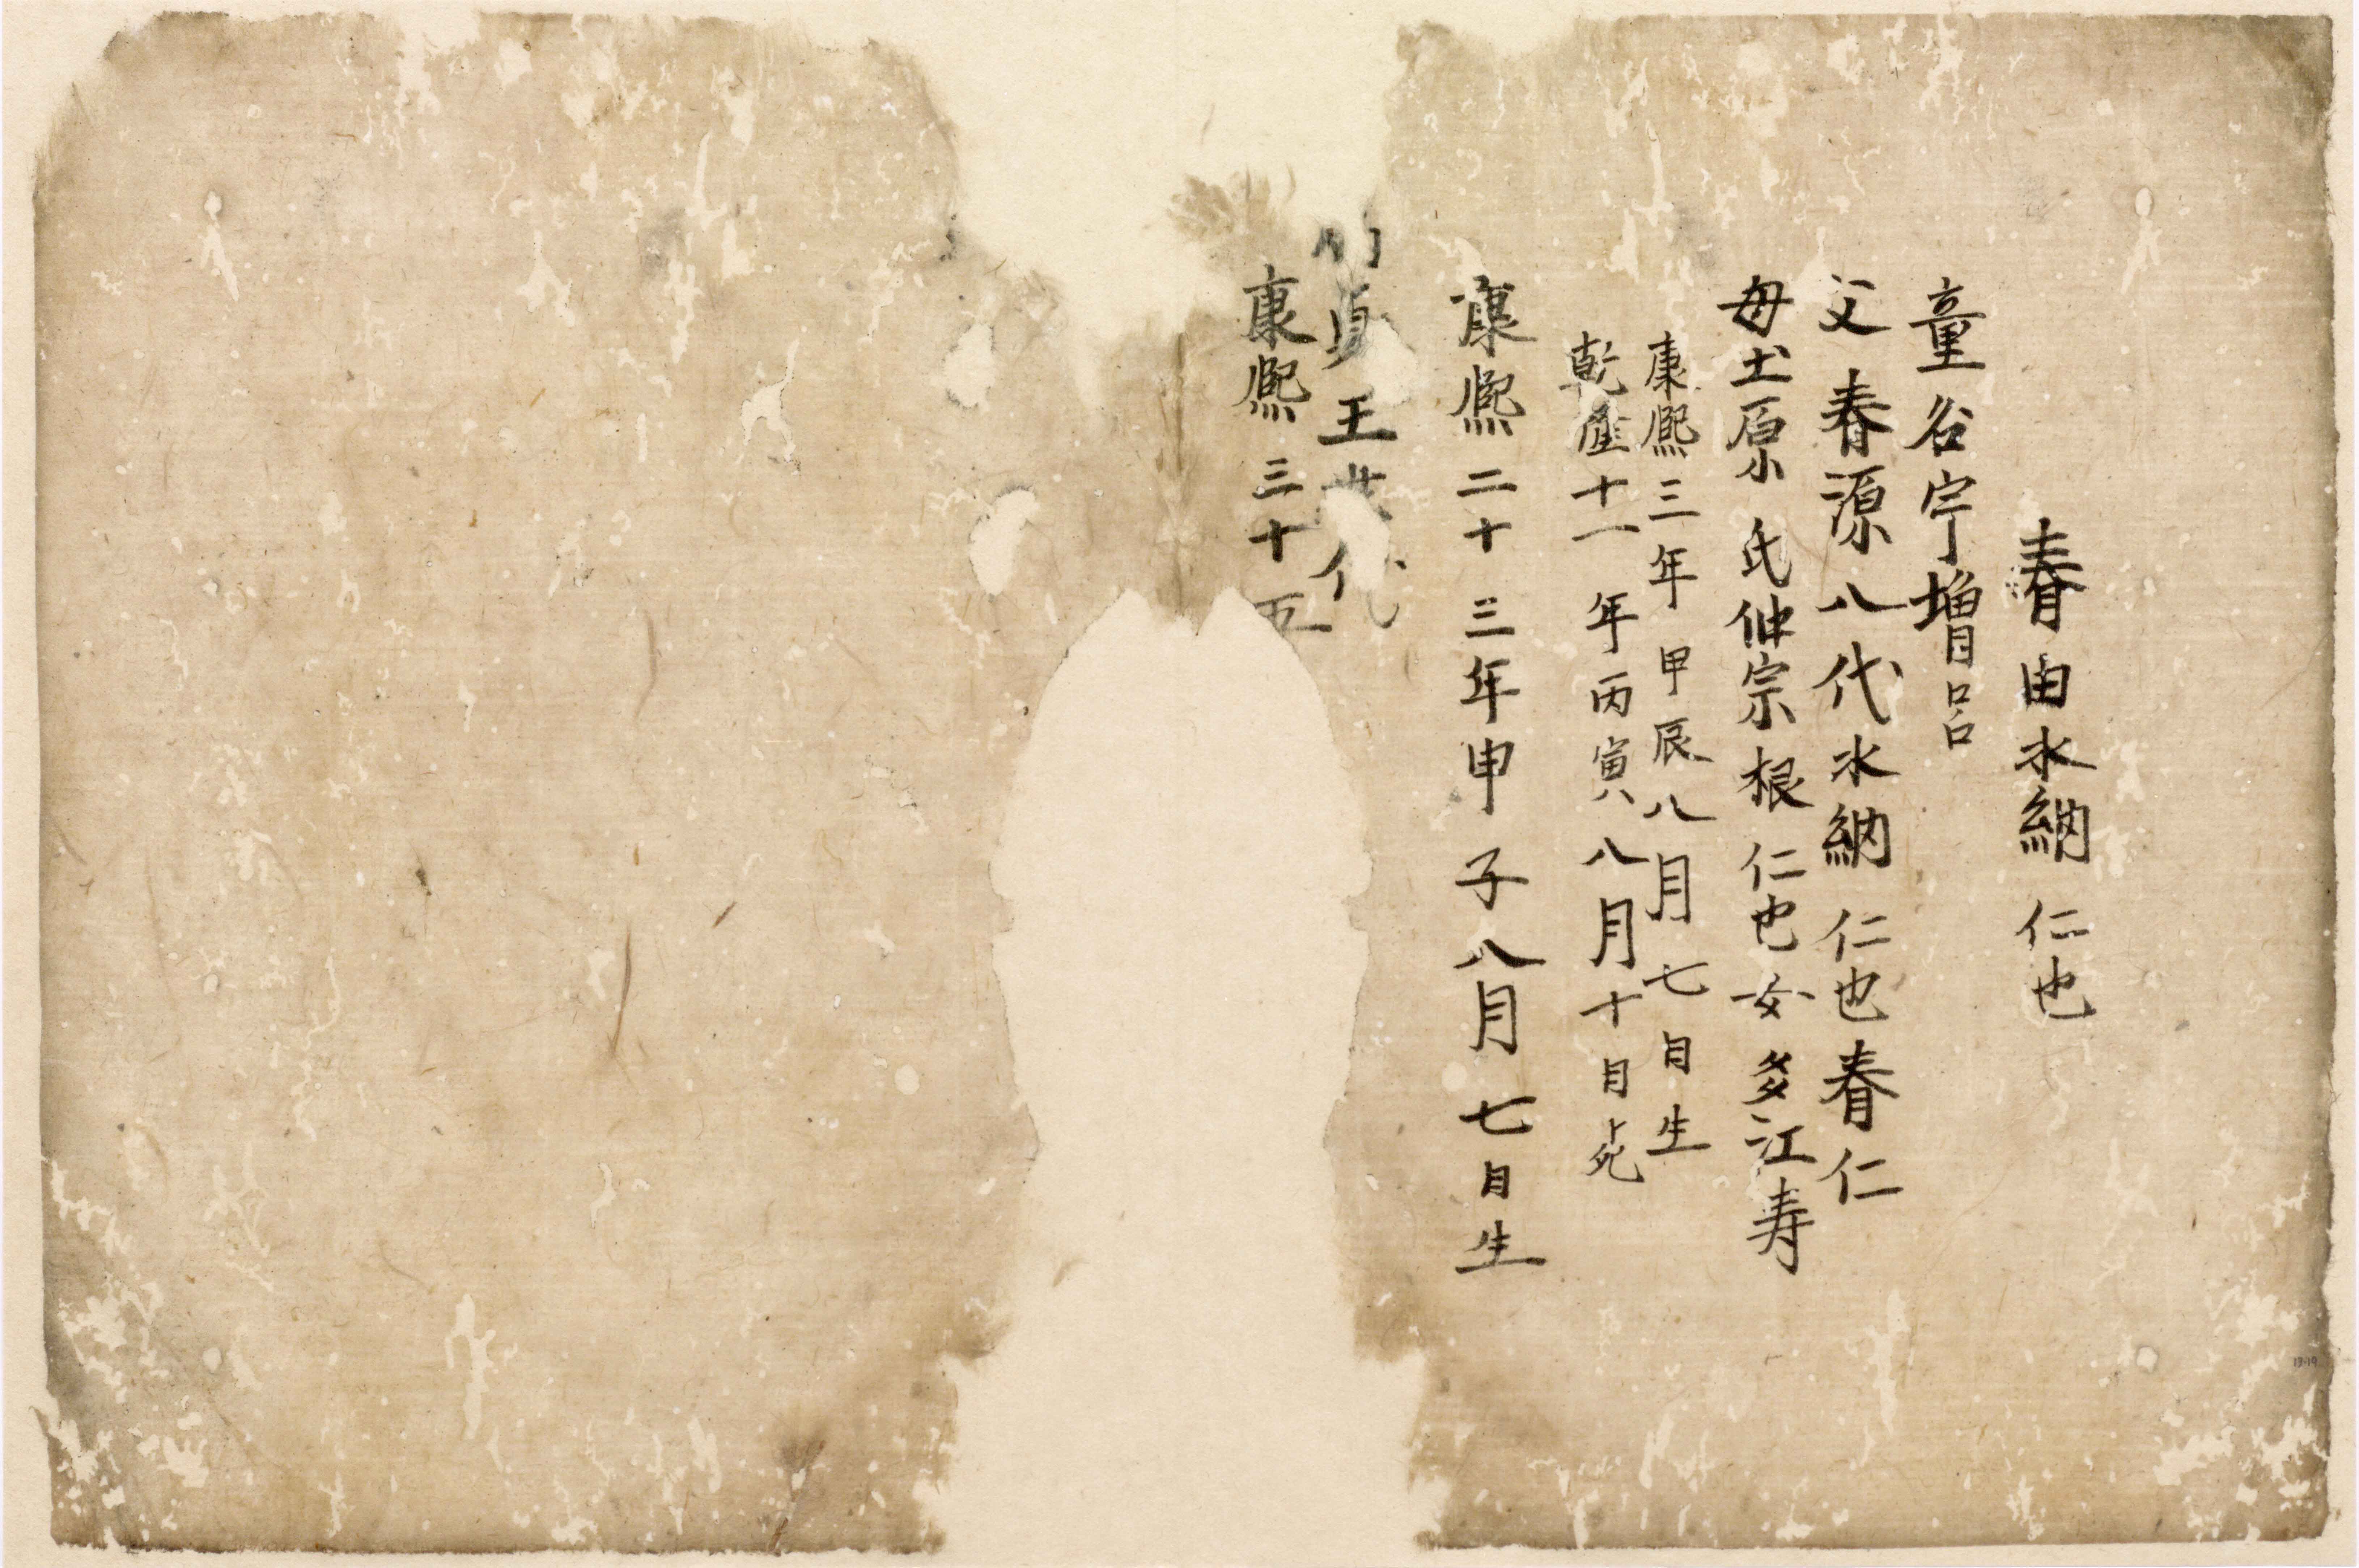 春由水納 仁也
童名宇増呂
父 春源八代水納 仁也春仁
母土原 氏仲宗根 仁也女多江寿
康熙三年甲辰八月七日生
乾隆十一年丙寅八月十日死
康熙二十三年甲子八月七日生
貞王 代
康熙三十五
13-19